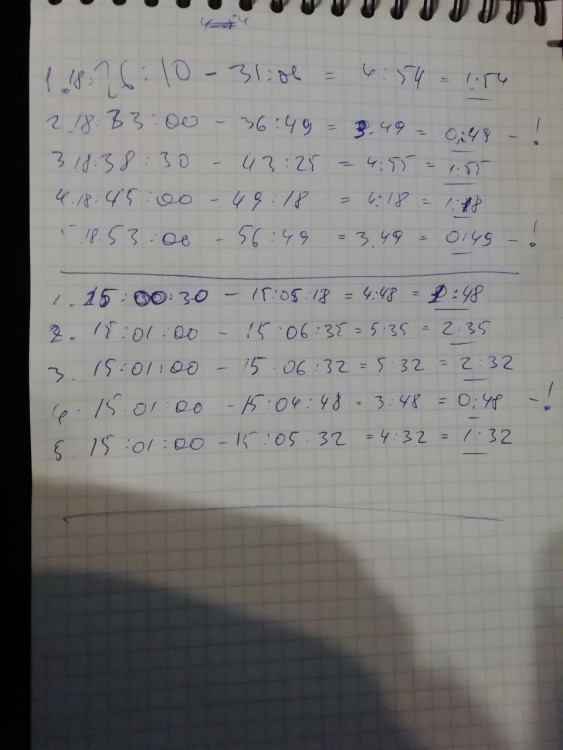 1. 18:26:10 - 31:06 = 4:54 = 1:54
2. 18:33:00 - 36:49 = 3.49 = 0:49 - !
3 18.38:30 - 43:25 = 4:55 = 1:55
4. 18:45:00 - 49:18 = 4:18 = 1:18
18.53:00 - 56:49 = 3.49 = 0:49 - !
1. 15:00:30 - 15:05:18 = 4:48 = 1:48
2. 15:01:00 - 15:06:35 = 5:35 = 2:35
3. 15:01:00 - 15:06:32 = 5:32 = 2:32
4. 15:01:00 - 15:04:48 = 3:48 = 0:48 - !
5. 15:01:00 - 15:05:32 = 4:32 = 1:32